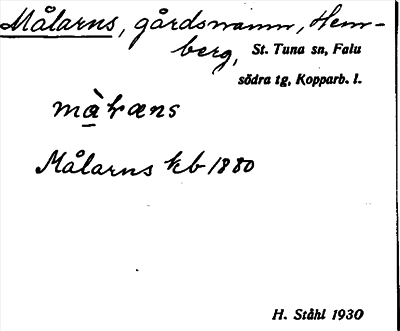 Målarns, gårdsnamn, Hem-
berg, St. Tuna sn, Falu
södra tg, Kopparb. l.
Målarns kb 1880
H. Ståhl 1930